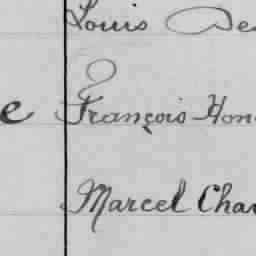 Louis De
e François Hon
Marcel Char